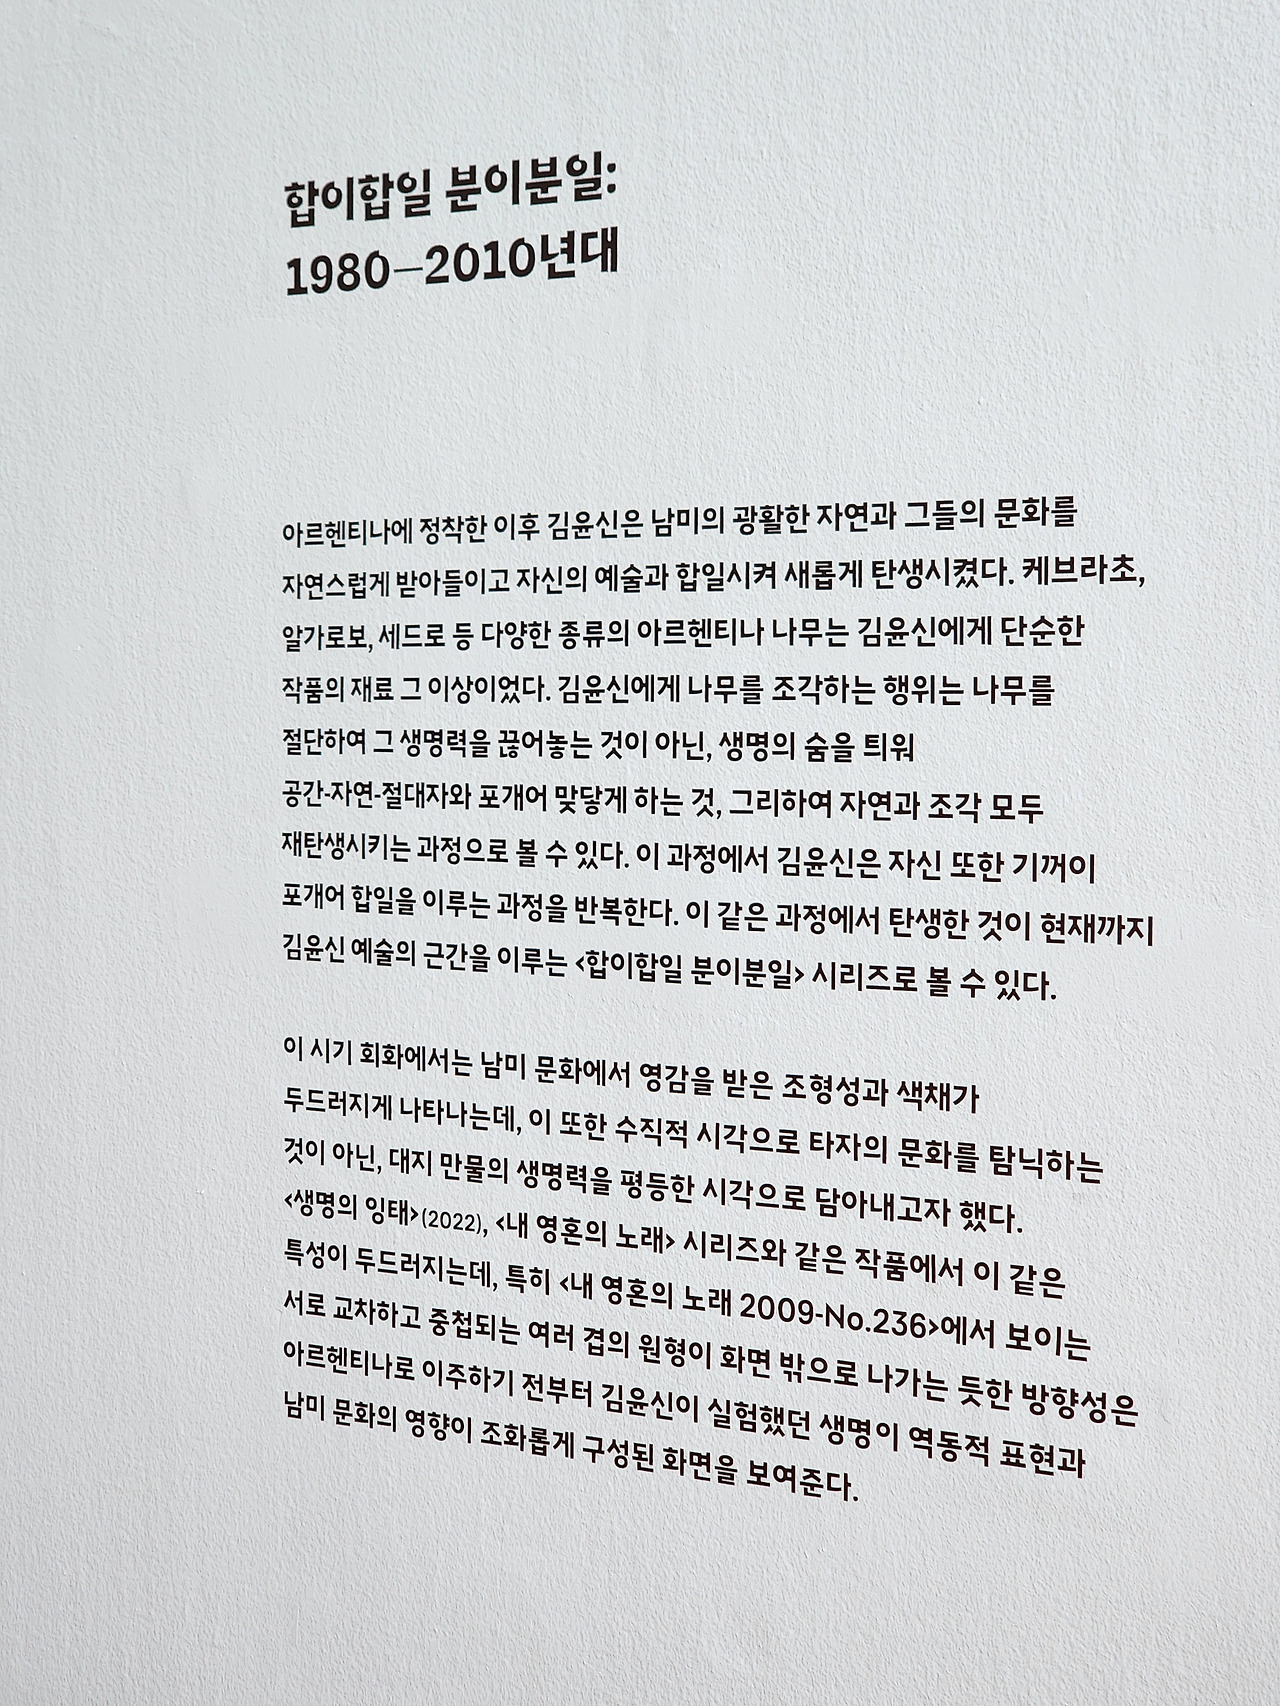 합이합일 분이분일:
1980–2010년대
아르헨티나에 정착한 이후 김윤신은 남미의 광활한 자연과 그들의 문화를
자연스럽게 받아들이고 자신의 예술과 합일시켜 새롭게 탄생시켰다. 케브라초,
알가로보, 세드로 등 다양한 종류의 아르헨티나 나무는 김윤신에게 단순한
작품의 재료 그 이상이었다. 김윤신에게 나무를 조각하는 행위는 나무를
절단하여 그 생명력을 끊어놓는 것이 아닌, 생명의 숨을 틔워
공간-자연-절대자와 포개어 맞닿게 하는 것, 그리하여 자연과 조각 모두
재탄생시키는 과정으로 볼 수 있다. 이 과정에서 김윤신은 자신 또한 기꺼이
포개어 합일을 이루는 과정을 반복한다. 이 같은 과정에서 탄생한 것이 현재까지
김윤신 예술의 근간을 이루는 <합이합일 분이분일> 시리즈로 볼 수 있다.
이 시기 회화에서는 남미 문화에서 영감을 받은 조형성과 색채가
두드러지게 나타나는데, 이 또한 수직적 시각으로 타자의 문화를 탐닉하는
것이 아닌, 대지 만물의 생명력을 평등한 시각으로 담아내고자 했다.
<생명의 잉태>(2022), <내 영혼의 노래> 시리즈와 같은 작품에서 이 같은
특성이 두드러지는데, 특히 <내 영혼의 노래 2009-No.236>에서 보이는
서로 교차하고 중첩되는 여러 겹의 원형이 화면 밖으로 나가는 듯한 방향성은
아르헨티나로 이주하기 전부터 김윤신이 실험했던 생명이 역동적 표현과
남미 문화의 영향이 조화롭게 구성된 화면을 보여준다.